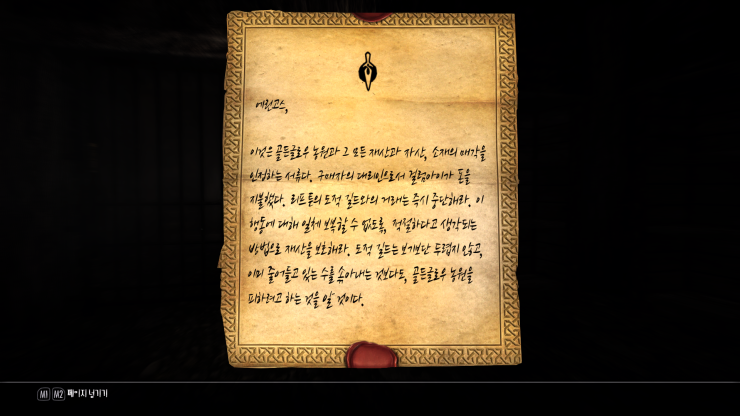 에린고스,
이것은 골든글로우 농원과 그 모든 재산과 자산, 소재의 매각을
인정하는 서류다. 구매자의 대리인으로서 걸럼아이가 돈을
지불했다. 리프튼의 도적 길드와의 거래는 즉시 중단해라. 이
행동에 대해 일체 보복할 수 없도록, 적절하다고 생각되는
방법으로 재산을 보호해라. 도적 길드는 보기보단 두렵지 않고,
이미 줄어들고 있는 수를 솎아내는 것보다도, 골든글로우 농원을
피하려고 하는 것을 알 것이다.
M1 M2 페이지 넘기기